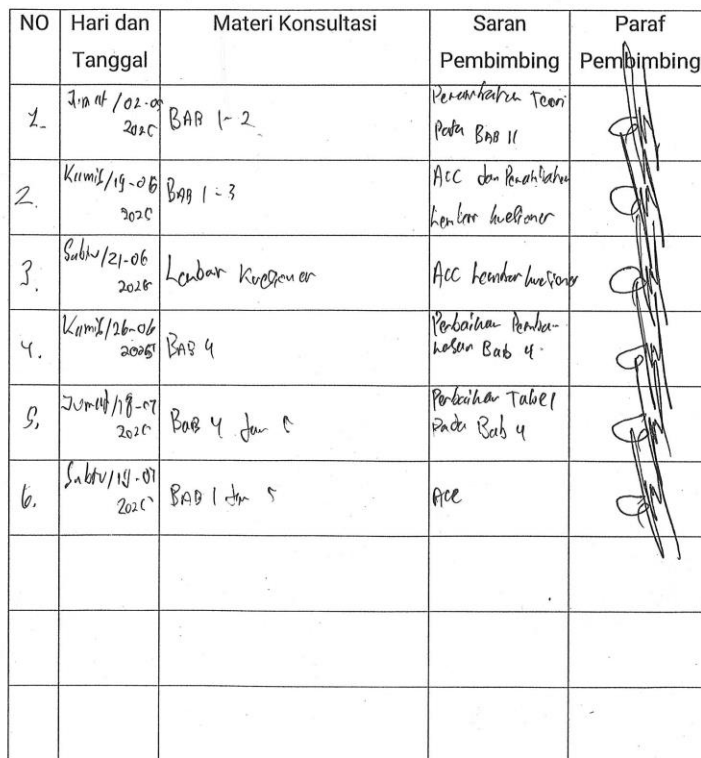 NO Hari dan Tanggal Materi Konsultasi Saran Pembimbing Paraf Pembimbing
1. Jumat/02-05 2025 BAB 1-2 Penambahan Teori Pada BAB II
2. Kamis/19-06 2025 BAB 1-3 ACC dan Lembar kuesioner
3. Sabtu/21-06 2025 Lembar Kuesioner ACC Lembar kuesioner
4. Kamis/26-06 2025 BAB 4 Perbaikan Pemba-hasan Bab 4.
5. Jumat/18-07 2025 BAB 4 dan 5 Perbaikan Tabel Pada Bab 4
6. Sabtu/19-07 2025 BAB 1 dan 5 ACC